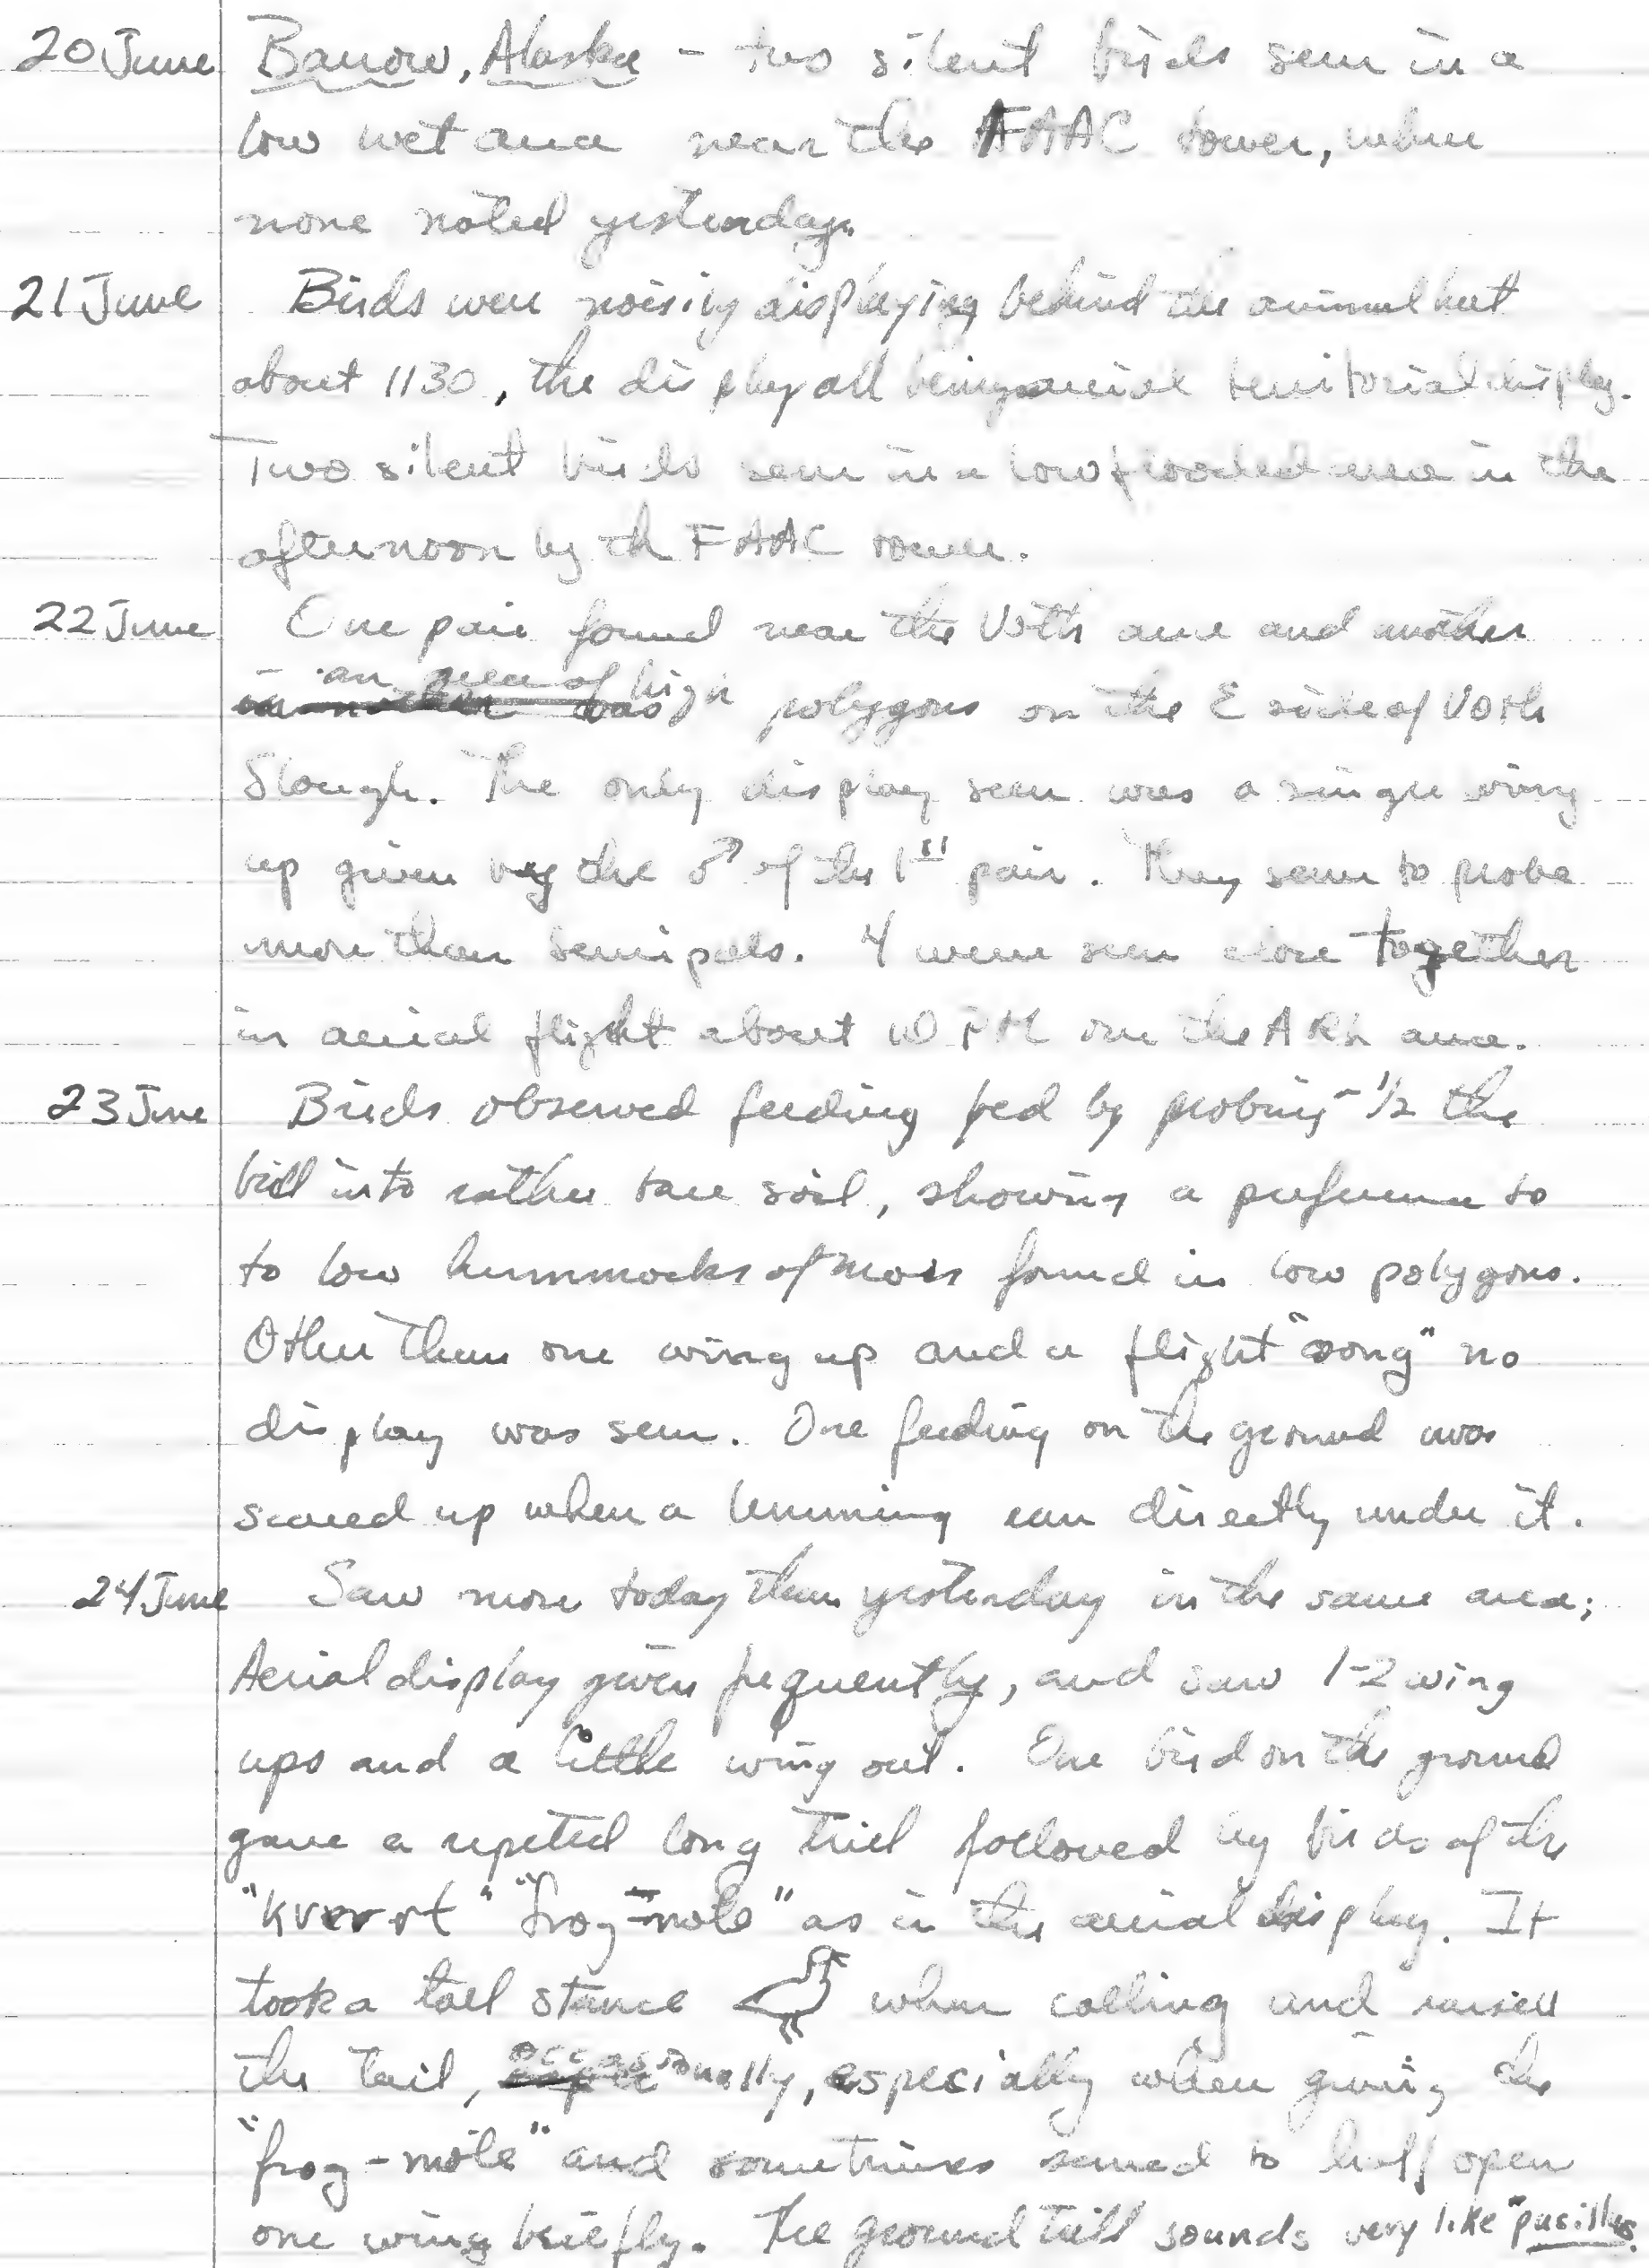 20 June Barrow, Alaska - two silent birds seen in a
low wet area near the FAAC tower, where
none noted yesterday.
21 June Birds were noisily displaying behind the animal hut
about 1130, the display all being aerial territorial display.
Two silent birds seen in a low flooded area in the
afternoon by th FAAC tower.
22 June One pair found near the Voth area and another
in an area of high polygons on the E side of Voth
Slough. The only display seen was a single wing
up given by the ♂ of the 1st pair. They seem to probe
more than semipals. 4 were seen close together
in aerial flight about 10 PM on the ARL area.
23 June Birds observed feeding fed by probing ~ 1/2 the
bill into rather bare soil, showing a preference to
to low hummocks of moss found in low polygons.
Other than one wing up and a flight "song" no
display was seen. One feeding on the ground was
scared up when a lemming ran directly under it.
24 June Saw more today than yesterday in the same area;
Aerial display given frequently, and saw 1-2 wing
ups and a little wing out. One bird on the ground
gave a repeted long trill followed by of the
"kvrrrt" "frog-note" as in the aerial display. It
took a tall stance when calling and raised
the tail, occasionally, especially when giving the
"frog-note" and sometimes seemed to half open
one wing briefly. The ground trill sounds very like "pusillus.